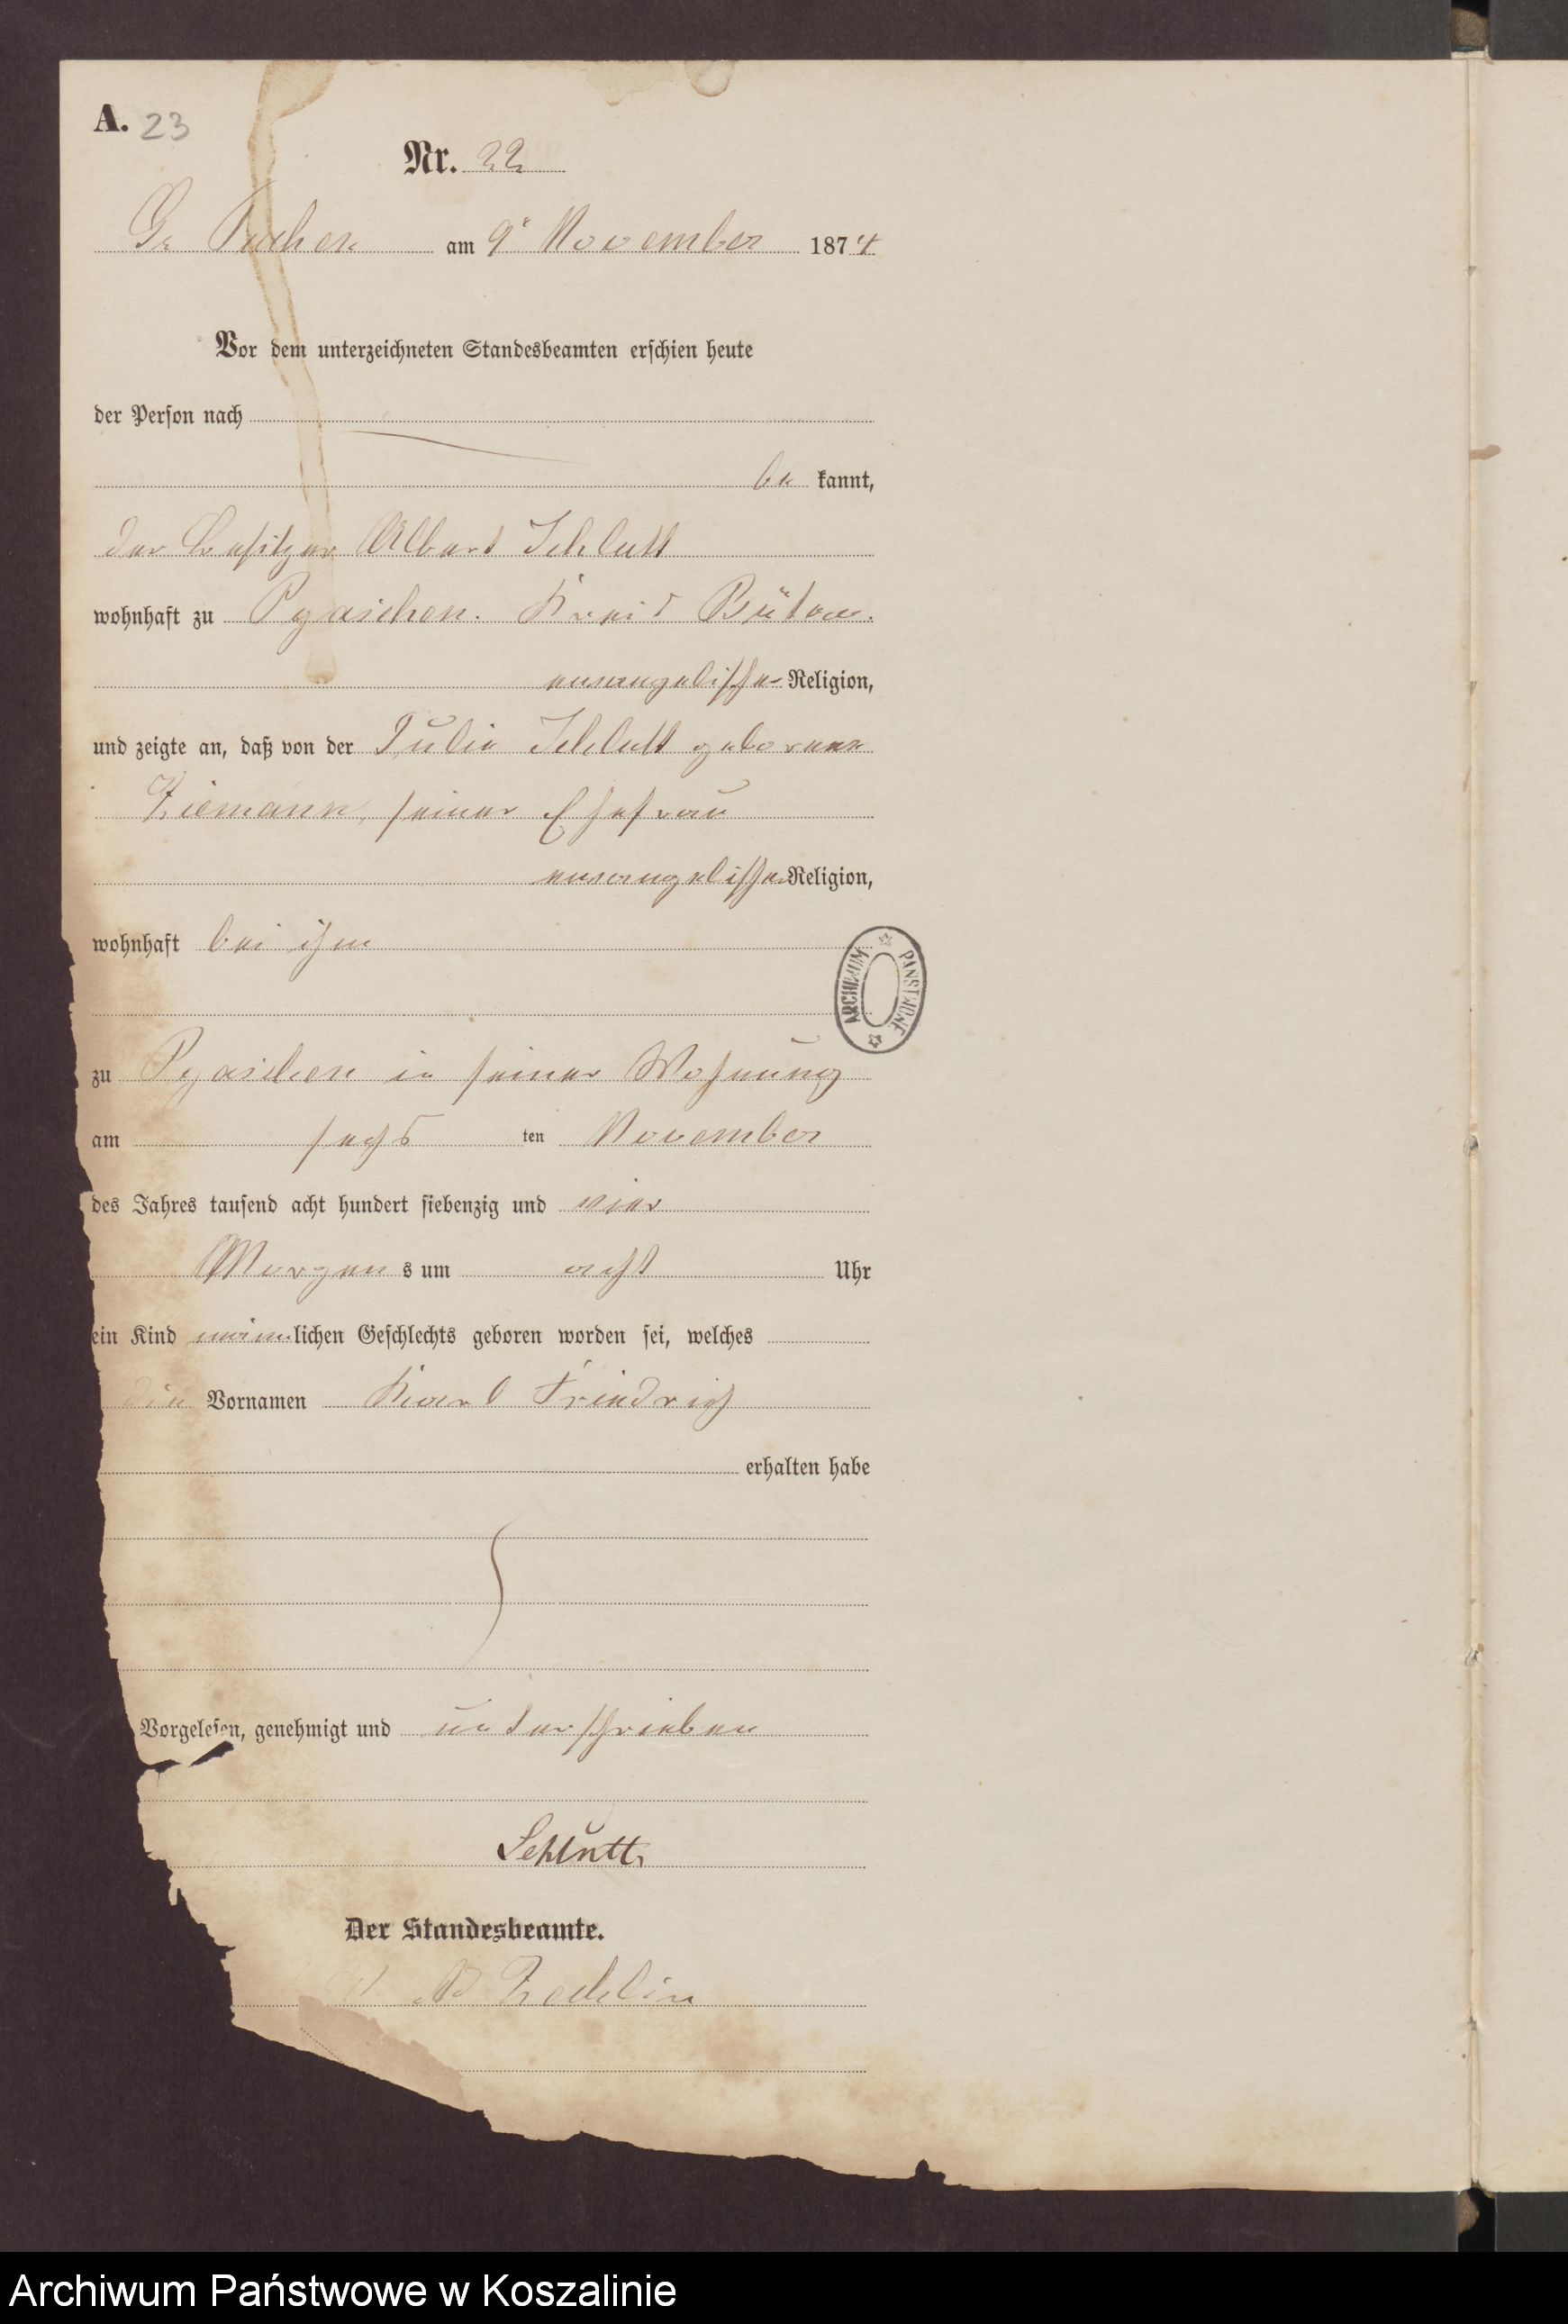 A. 23
Nr. 22
Gr Tuchen am 9t November 1874
Vor dem unterzeichneten Standesbeamten erschien heute
der Person nach
be kannt,
der Besitzer Albert Schlutt
wohnhaft zu Pyaschen. Kreis Bütow.
evangelischer Religion,
und zeigte an, daß von der Julie Schlutt geborene
Ziemann, seiner Ehefrau
evangelischer Religion,
wohnhaft bei ihm
ARCHIWUM PAŃSTWOWE
zu Pyaschen in seiner Wohnung
am sechs ten November
des Jahres tausend acht hundert siebenzig und vier
Morgen s um acht Uhr
ein Kind männlichen Geschlechts geboren worden sei, welches
die Vornamen Karl Friedrich
erhalten habe
Vorgelesen, genehmigt und unterschrieben
Schlutt
Der Standesbeamte.
Archiwum Państwowe w Koszalinie